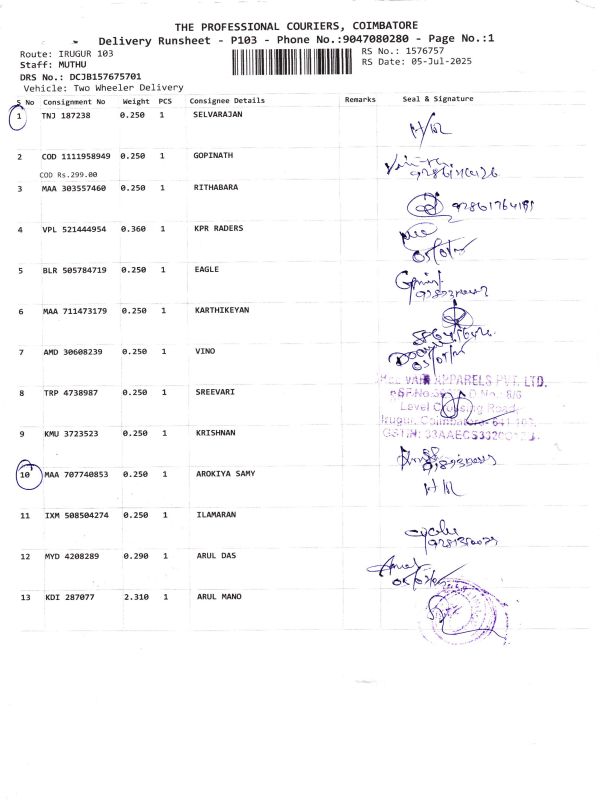 THE PROFESSIONAL COURIERS, COIMBATORE
Delivery Runsheet - P103 - Phone No.:9047080280 - Page No.:1
Route: IRUGUR 103
RS No.: 1576757
Staff: MUTHU
RS Date: 05-Jul-2025
DRS No.: DCJB157675701
Vehicle: Two Wheeler Delivery
S No Consignment No Weight PCS Consignee Details Remarks Seal & Signature
1 TNJ 187238 0.250 1 SELVARAJAN
2 COD 1111958949 0.250 1 GOPINATH
COD Rs.299.00
3 MAA 303557460 0.250 1 RITHABARA
4 VPL 521444954 0.360 1 KPR RADERS
5 BLR 505784719 0.250 1 EAGLE
6 MAA 711473179 0.250 1 KARTHIKEYAN
7 AMD 30608239 0.250 1 VINO
APPARELS PVT. LTD.
8 TRP 4738987 0.250 1 SREEVARI
Level Crossing Road
Irugur, Coimbatore- 641 103.
9 KMU 3723523 0.250 1 KRISHNAN
10 MAA 707740853 0.250 1 AROKIYA SAMY
11 IXM 508504274 0.250 1 ILAMARAN
12 MYD 4208289 0.290 1 ARUL DAS
13 KDI 287077 2.310 1 ARUL MANO